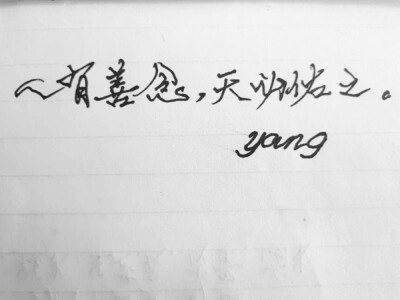 人有善念,天必佑之。
yang